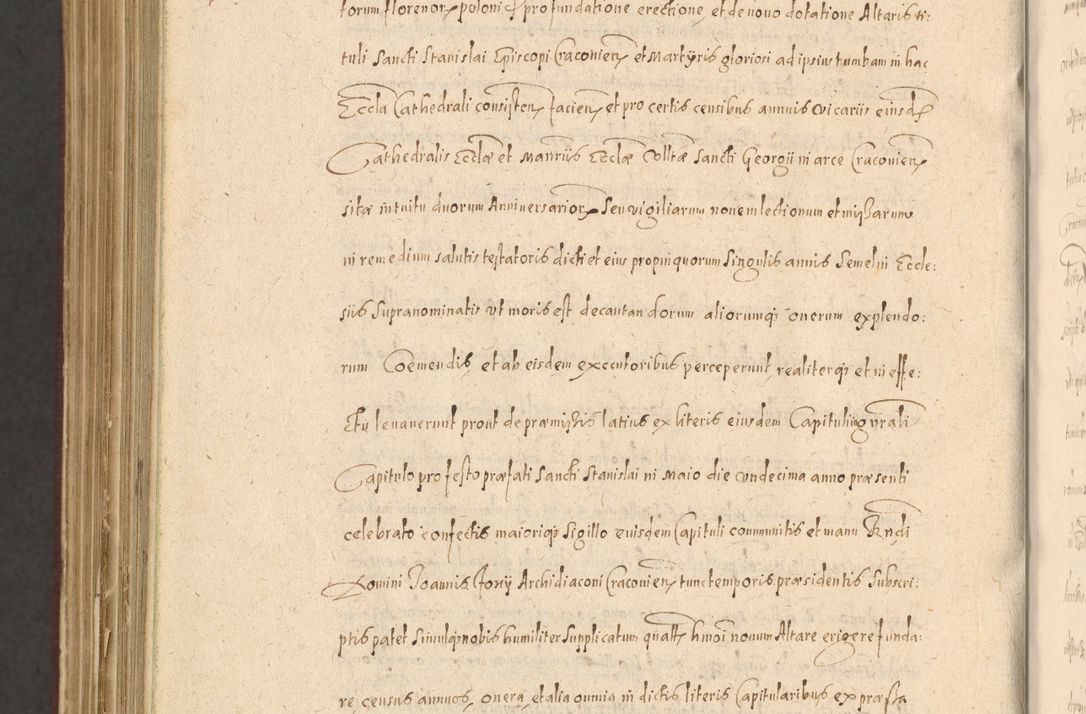 torum florenor poloni pro fundatione erectione et de novo dotatione Altaris ti:
tuli Sancti Stanislai Episcopi Cracovien et Martyris gloriosi ad ipsius tumbam in hac
Eccla Cathedrali consisten facien et pro certis censibus annuis vicariis eiusd
Cathedralis Ecclæ et Manriis Ecclæ Colltæ Sancti Georgii in arce Cracovien
sitæ intuitu duorum Anniversarior Seu vigiliarum novem lectionum et missarum
in remedium salutis testatoris dicti et eius propinquorum Singulis annis Semel in Eccle:
siis Supranominatis ut moris est decantandorum aliorumq onerum explendo:
rum Comendis, et ab eisdem executoribus perceperunt, realiterq et in effe:
ctu levaverunt prout de præmissis latius ex literis eiusdem Capituli in grali
Capitulo pro festo præfati Sancti Stanislai in Maio die undecima anno præsenti
celebrato confectis maioriq Sigillo eiusdem Capituli communitis et manu Rndi
Domini Joannis Archidiaconi Cracovien tunc temporis præsidentis Subscri:
ptis patet Simulq nobis humiliter Supplicatum quatt hmoi novum Altare erigere funda:
re census annuos, onera, et alia omnia in dictis literis Capitularibus expræssa